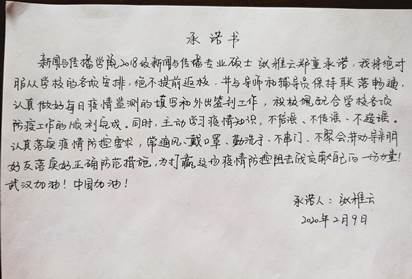 承诺书
新闻与传播学院2018级新闻与传播专业硕士张雅云郑重承诺，我将绝对
服从学校的各项安排，绝不提前返校，并与导师和辅导员保持联络畅通，
认真做好每日疫情监测的填写和外出签到工作，积极配合学校各项
防疫工作的顺利完成。同时，主动学习疫情知识，不信谣、不传谣、不造谣。
认真落实疫情防控要求，常通风、戴口罩、勤洗手、不串门、不聚会并劝导亲朋
好友落实好正确防范措施，为打赢这场疫情防控阻击战贡献自己的一份力量！
武汉加油！中国加油！
承诺人：张雅云
2020年2月9日